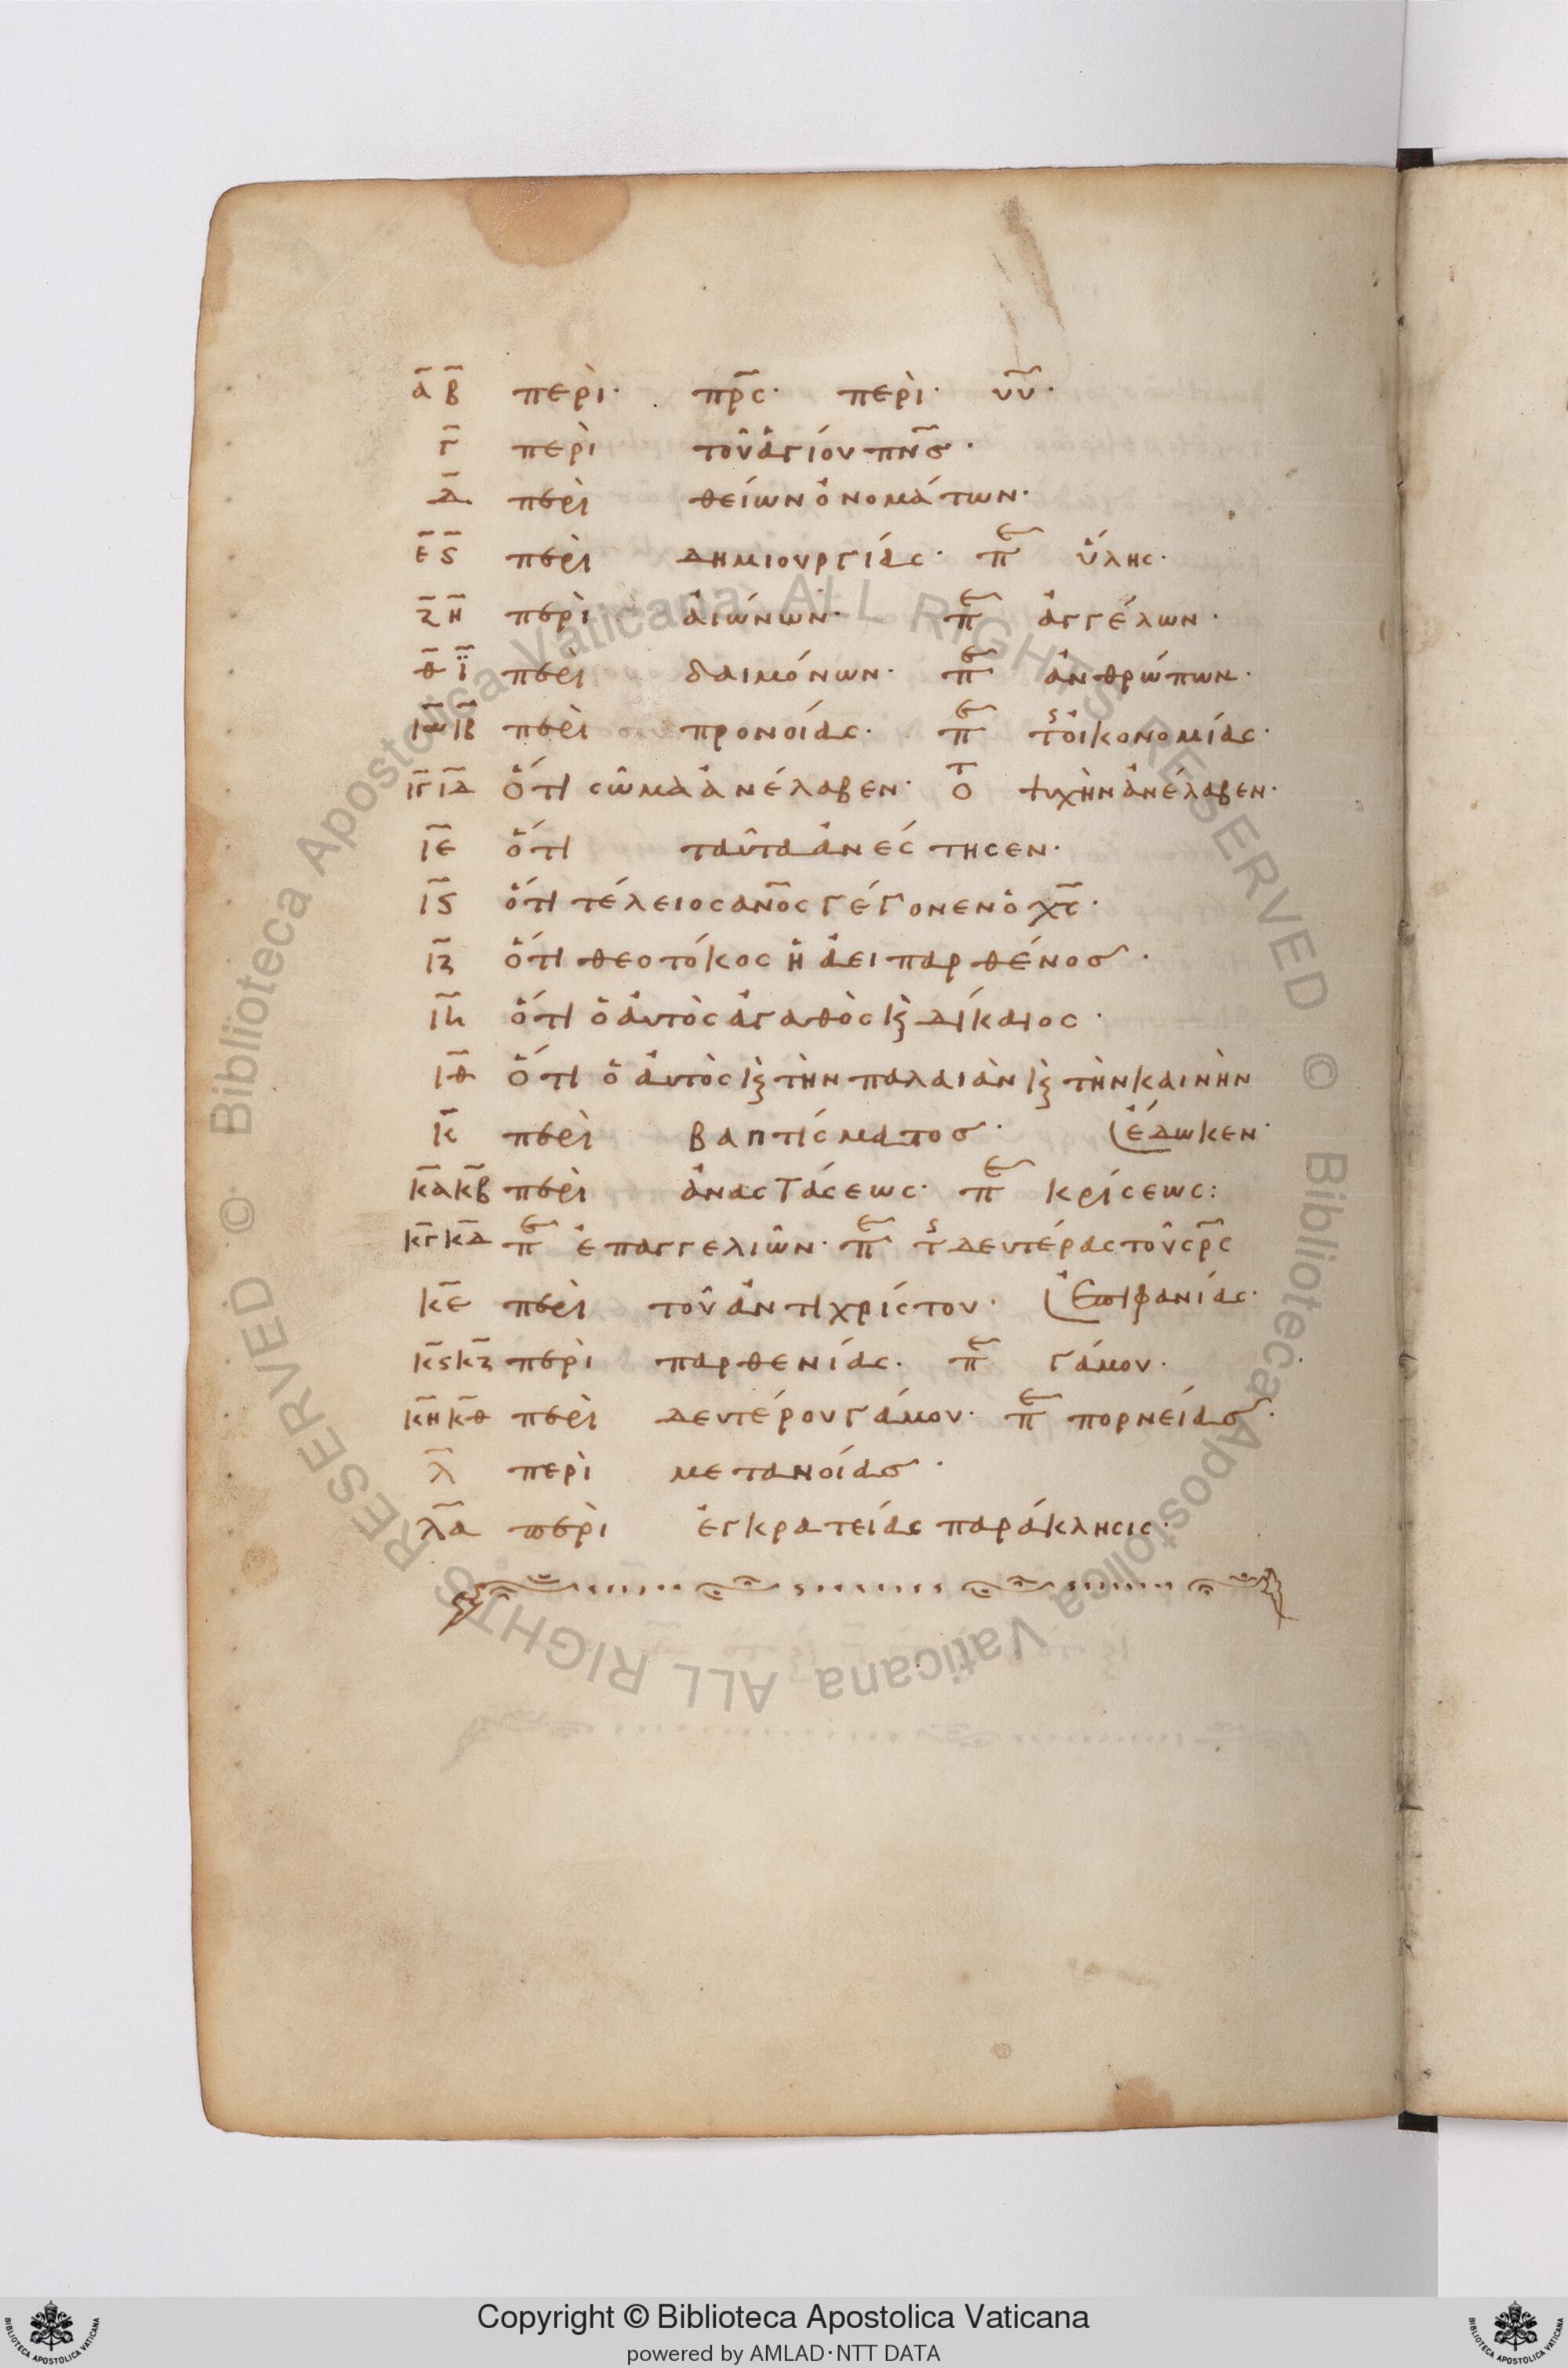 α̅ β̅ περὶ· πρ̅ς· περὶ· υυ̅·
γ̅ περὶ τοῦ ἁγίου πν̅ς·
δ̅ περὶ θείων ὀνομάτων·
ε̅ ϛ̅ περὶ δημιουργίας· πε ὕλης·
ζ̅ η̅ περὶ αἰώνων· πε ἀγγέλων·
θ̅ ϊ̅ περὶ δαιμόνων· πε ἀνθρώπων·
ια̅ ιβ̅ περὶ προνοίας· πε τ οἰκονομίας·
ιγ̅ ιδ̅ ὅτι σῶμα ἀνέλαβεν· οτ ψυχὴν ἀνέλαβεν·
ιε̅ ὅτι ταῦτα ἀνέστησεν·
ιϛ̅ ὅτι τέλειος ανο̅ς γέγονεν ὁ χς̅·
ιζ̅ ὅτι θεοτόκος ἡ ἀειπαρθένος·
ιη̅ ὅτι ὁ αὐτὸς ἀγαθὸς ϗ δίκαιος·
ιθ̅ ὅτι ὁ αὐτὸς ϗ τὴν παλαιὰν ϗ τὴν καινὴν
κ̅ περὶ βαπτίσματος· ἔδωκεν·
κα̅ κβ̅ περὶ ἀναστάσεως· πε κρίσεως:
κγ̅ κδ̅ πε ἐπαγγελιῶν· πε τ δευτέρας τοῦ σρ̅ς
κε̅ περὶ τοῦ ἀντιχρίστου· ἐπιφανίας·
κϛ̅ κζ̅ περὶ παρθενίας· πε γάμου·
κη̅ κθ̅ περὶ δευτέρου γάμου· πε πορνείας·
λ̅ περὶ μετανοίας·
λα̅ περὶ ἐγκρατείας παράκλησις·
© Biblioteca Apostolica Vaticana ALL RIGHTS RESERVED
© Biblioteca Apostolica Vaticana ALL RIGHTS RESERVED
Copyright © Biblioteca Apostolica Vaticana
powered by AMLAD·NTT DATA
BIBLIOTECA APOSTOLICA VATICANA
BIBLIOTECA APOSTOLICA VATICANA